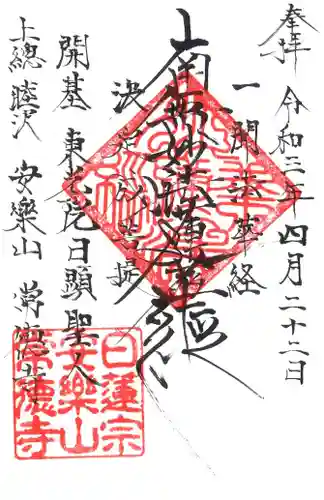 奉拝 令和三年四月二十二日
一聞法華経
南無妙法蓮華経
決定分菩提
開基 東光院日顕聖人
上總睦沢 安樂山 常徳寺
日蓮宗
安樂山
常德寺